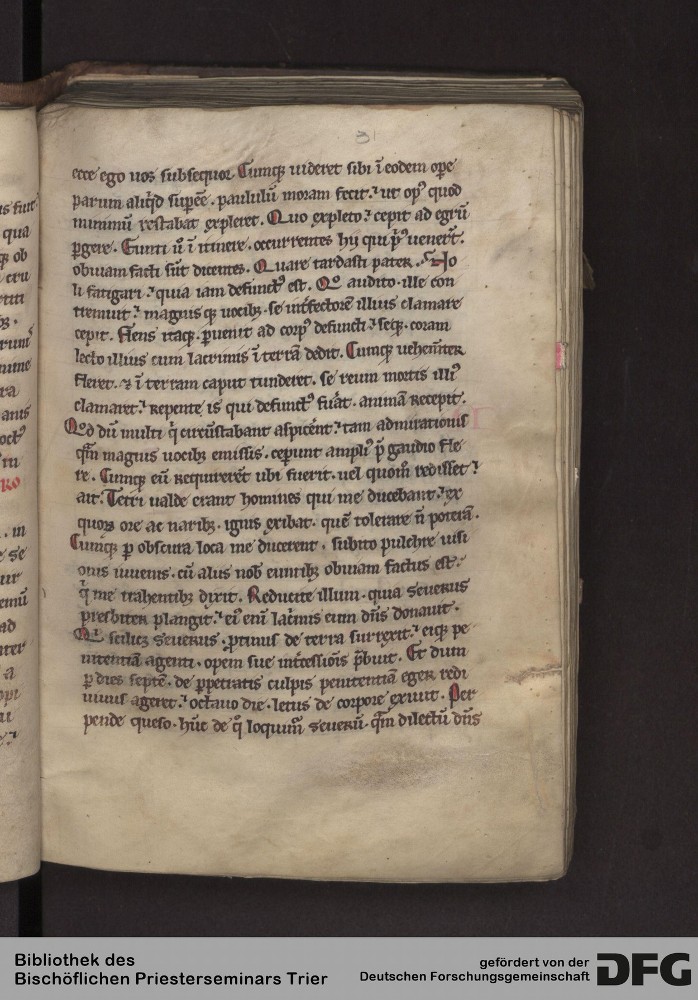 31
ecce ego uos subsequor. Cumq; uideret sibi ī eodem oꝑe
parum aliq̇d suꝑeē. paululū moram fecit.ut opꝰ quod
minimū restabat expleret. Quo expleto cepit ad egrū
ꝑgere. Eunti ū ī itinere. occurrentes hy qui p̄ꝰ uener̄t.
obuiam facti sūt dicentes. Quare tardasti pater. No
li fatigari quia iam defunctꝰ est. Qͦ audito. ille con
tremuit magnis q; uocib; se int̄fectorē illius clamare
cepit. Flens itaq; ꝑuenit ad corpꝰ defuncti seq; coram
lecto illius cum lacrimis ī terrā dedit. Cumq; uehem̄ter
fleret. ⁊ ī terram caput tunderet. se reum mortis illiꝰ
clamaret repente is qui defunctꝰ fūat. animā recepit.
Qͦd dū multi q̇ circūstabant aspicer̄t tam admirationis
qͣm magnis uocib; emissis. ceperunt ampliꝰ p̄ gaudio fle
re. Cumq; eū requirerēt ubi fuerit. uel quom̊ redisset
ait. Tetri ualde erant homines qui me ducebant ex
quoꝝ ore ac narib; ignis exibat. quē tolerare n̄ poterā.
Cumq; ꝑ obscura loca me ducerent. subito pulchre uisi
onis iuuenis. cū aliis nob̄ euntib; obuiam factus est.
q̇ me trahentib; dixit. Reducite illum. quia Seuerus
presbiter plangit. eiꝰ enī lac̄mis eum dn̄s donauit.
Qͥ scilic; Seuerus. ꝓtinus de terra surrexit eiq; pe
nitentiā agenti. opem sue int̄cessiōis p̄buit. Et dum
ꝑ dies septē. de ꝑpetratis culpis penitentiā eger redi
uiuus ageret octauo die. letus de corpore exiuit. Per
pende queso. hūc de qͦ loquim̄ Seuerū. qͣm dilectū dn̄s
Bibliothek des
Bischöflichen Priesterseminars Trier
gefördert von der
Deutschen Forschungsgemeinschaft
DFG